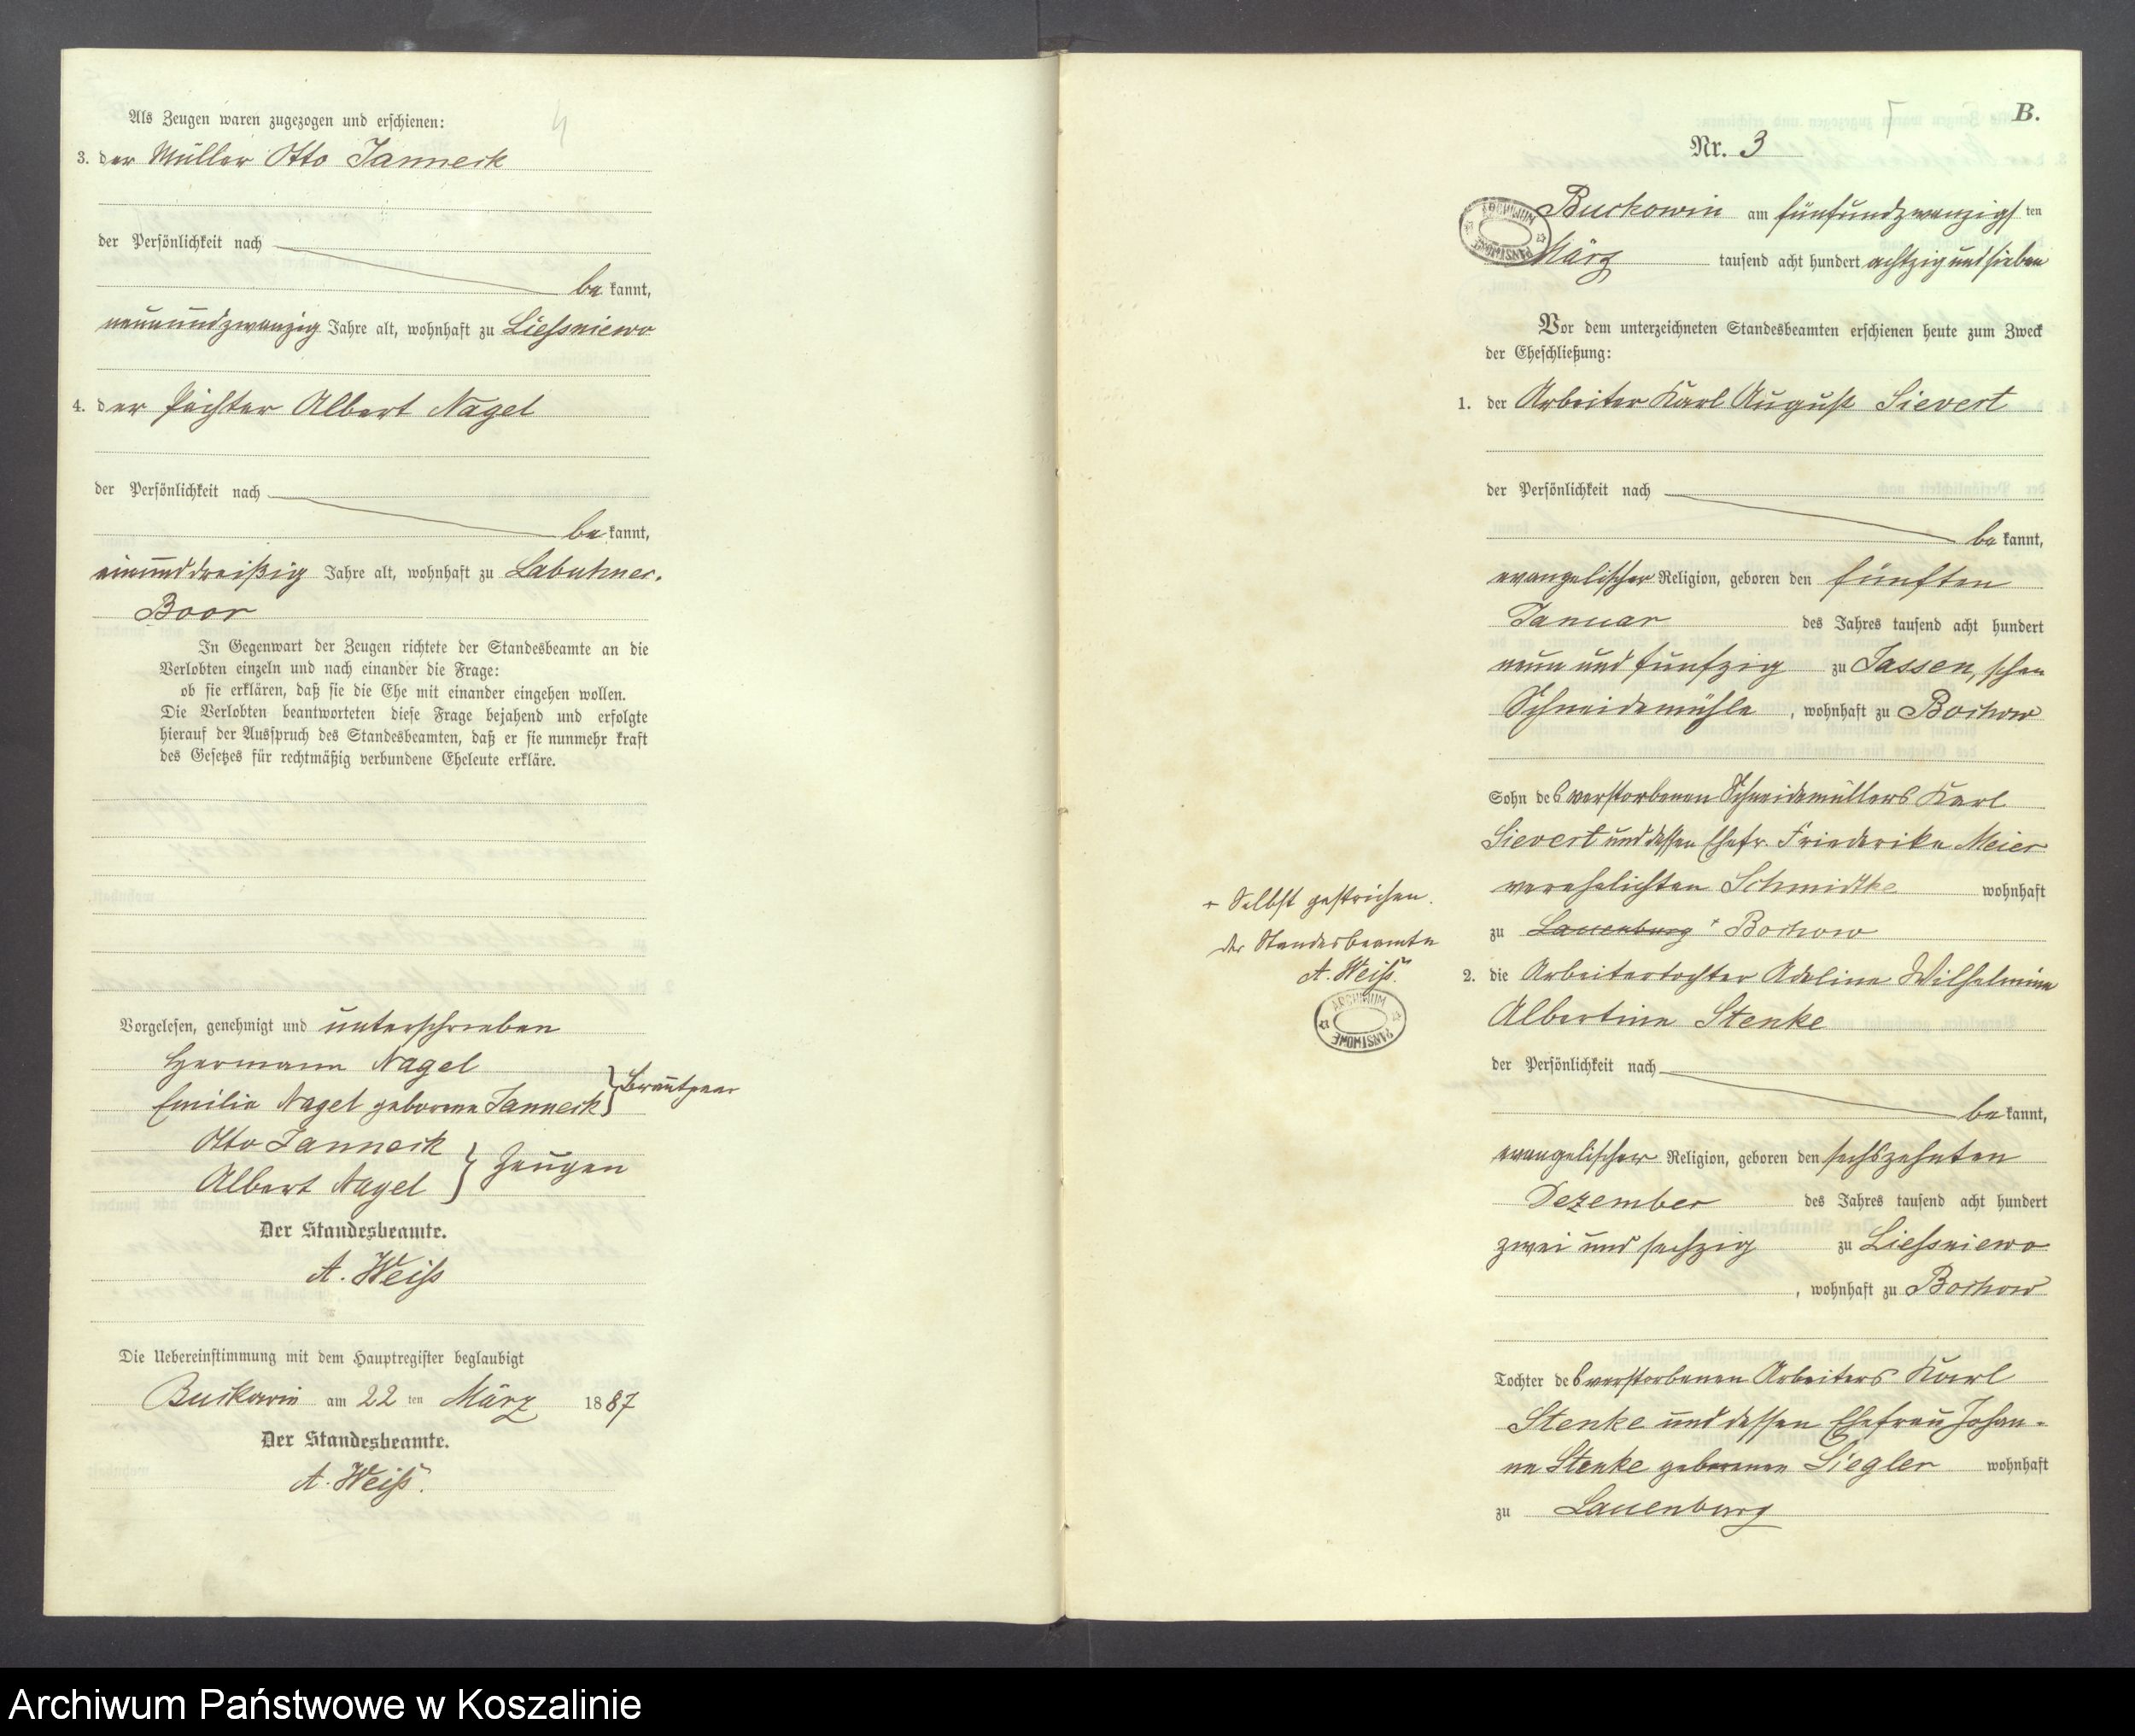 4
Als Zeugen waren zugezogen und erschienen:
3. der Müller Otto Janneck
der Persönlichkeit nach
be kannt,
neunundzwanzig Jahre alt, wohnhaft zu Liessniewo
4. der Pächter Albert Nagel
der Persönlichkeit nach
be kannt,
einunddreißig Jahre alt, wohnhaft zu Labuhner-
Boor
In Gegenwart der Zeugen richtete der Standesbeamte an die
Verlobten einzeln und nach einander die Frage:
ob sie erklären, daß sie die Ehe mit einander eingehen wollen.
Die Verlobten beantworteten diese Frage bejahend und erfolgte
hierauf der Ausspruch des Standesbeamten, daß er sie nunmehr kraft
des Gesetzes für rechtmäßig verbundene Eheleute erkläre.
Vorgelesen, genehmigt und unterschrieben
Hermann Nagel
Emilie Nagel geborene Janneck } Brautpaar
Otto Janneck
Albert Nagel } Zeugen
Der Standesbeamte.
A. Weiss
Die Uebereinstimmung mit dem Hauptregister beglaubigt
Buckowin am 22 ten März 1887
Der Standesbeamte.
A. Weiß.
B.
Nr. 3
Buckowin am fünfundzwanzigsten
März tausend acht hundert achtzig und sieben
ARCHIWUM PAŃSTWOWE
Vor dem unterzeichneten Standesbeamten erschienen heute zum Zweck
der Eheschließung:
1. der Arbeiter Karl August Sievert
der Persönlichkeit nach
be kannt,
evangelischer Religion, geboren den fünften
Januar des Jahres tausend acht hundert
neun und fünfzig zu Jassen, schen
Schneidemühle, wohnhaft zu Bochow
Sohn des verstorbenen Schneidemüllers Karl
Sievert und dessen Ehefr. Friederike Meier
verehelichten Schmidtke wohnhaft
zu Lauenburg + Bochow
+ Selbst gestrichen.
der Standesbeamte
A. Weiß.
ARCHIWUM PAŃSTWOWE
2. die Arbeitertochter Adeline Wilhelmine
Albertine Stenke
der Persönlichkeit nach
be kannt,
evangelischer Religion, geboren den sechszehnten
Dezember des Jahres tausend acht hundert
zwei und sechzig zu Liessniewo
, wohnhaft zu Bochow
Tochter des verstorbenen Arbeiters Karl
Stenke und dessen Ehefrau Johan-
ne Stenke geborenen Siegler wohnhaft
zu Lauenburg
Archiwum Państwowe w Koszalinie